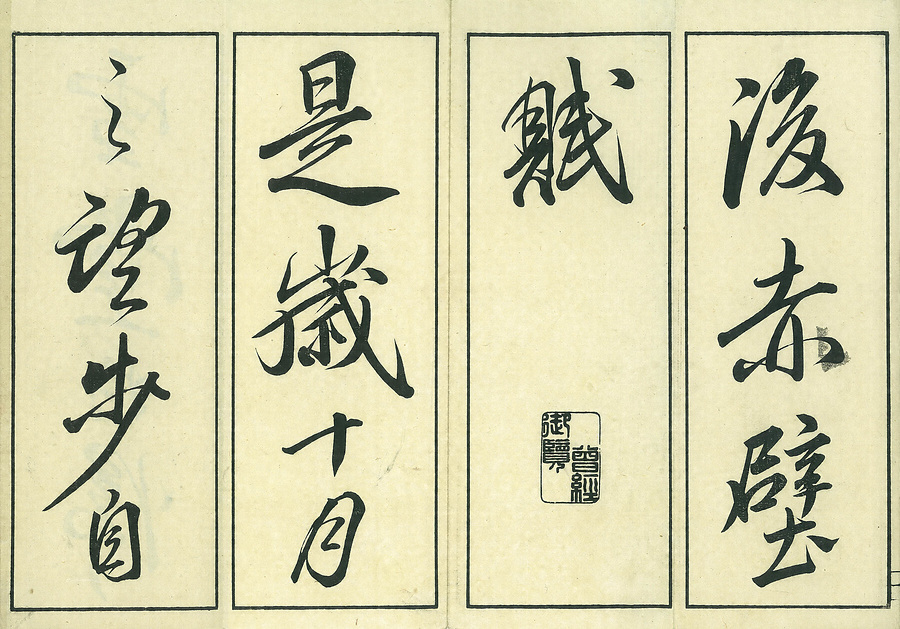 後赤壁
賦
曾經
御覽
是歲十月
之望步自